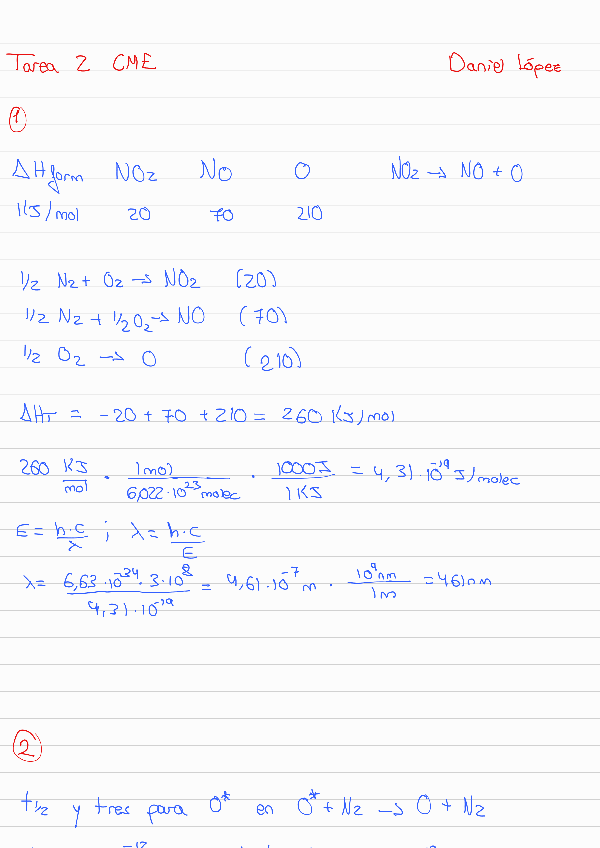 Tarea 2 CME Daniel López
①
ΔHform NO₂ NO O NO₂ → NO + O
KJ/mol 20 70 210
1/2 N₂ + O₂ → NO₂ (20)
1/2 N₂ + 1/2 O₂ → NO (70)
1/2 O₂ → O (210)
ΔHr = -20 + 70 + 210 = 260 KJ/mol
260 KJ/mol · 1mol/6,022·10²³molec · 1000J/1KJ = 4,31·10⁻¹⁹ J/molec
E = h·c/λ ; λ = h·c/E
λ = 6,63·10⁻³⁴·3·10⁸/4,31·10⁻¹⁹ = 4,61·10⁻⁷ m · 10⁹nm/1m = 461nm
②
t1/2 y tres para O* en O* + N₂ → O + N₂